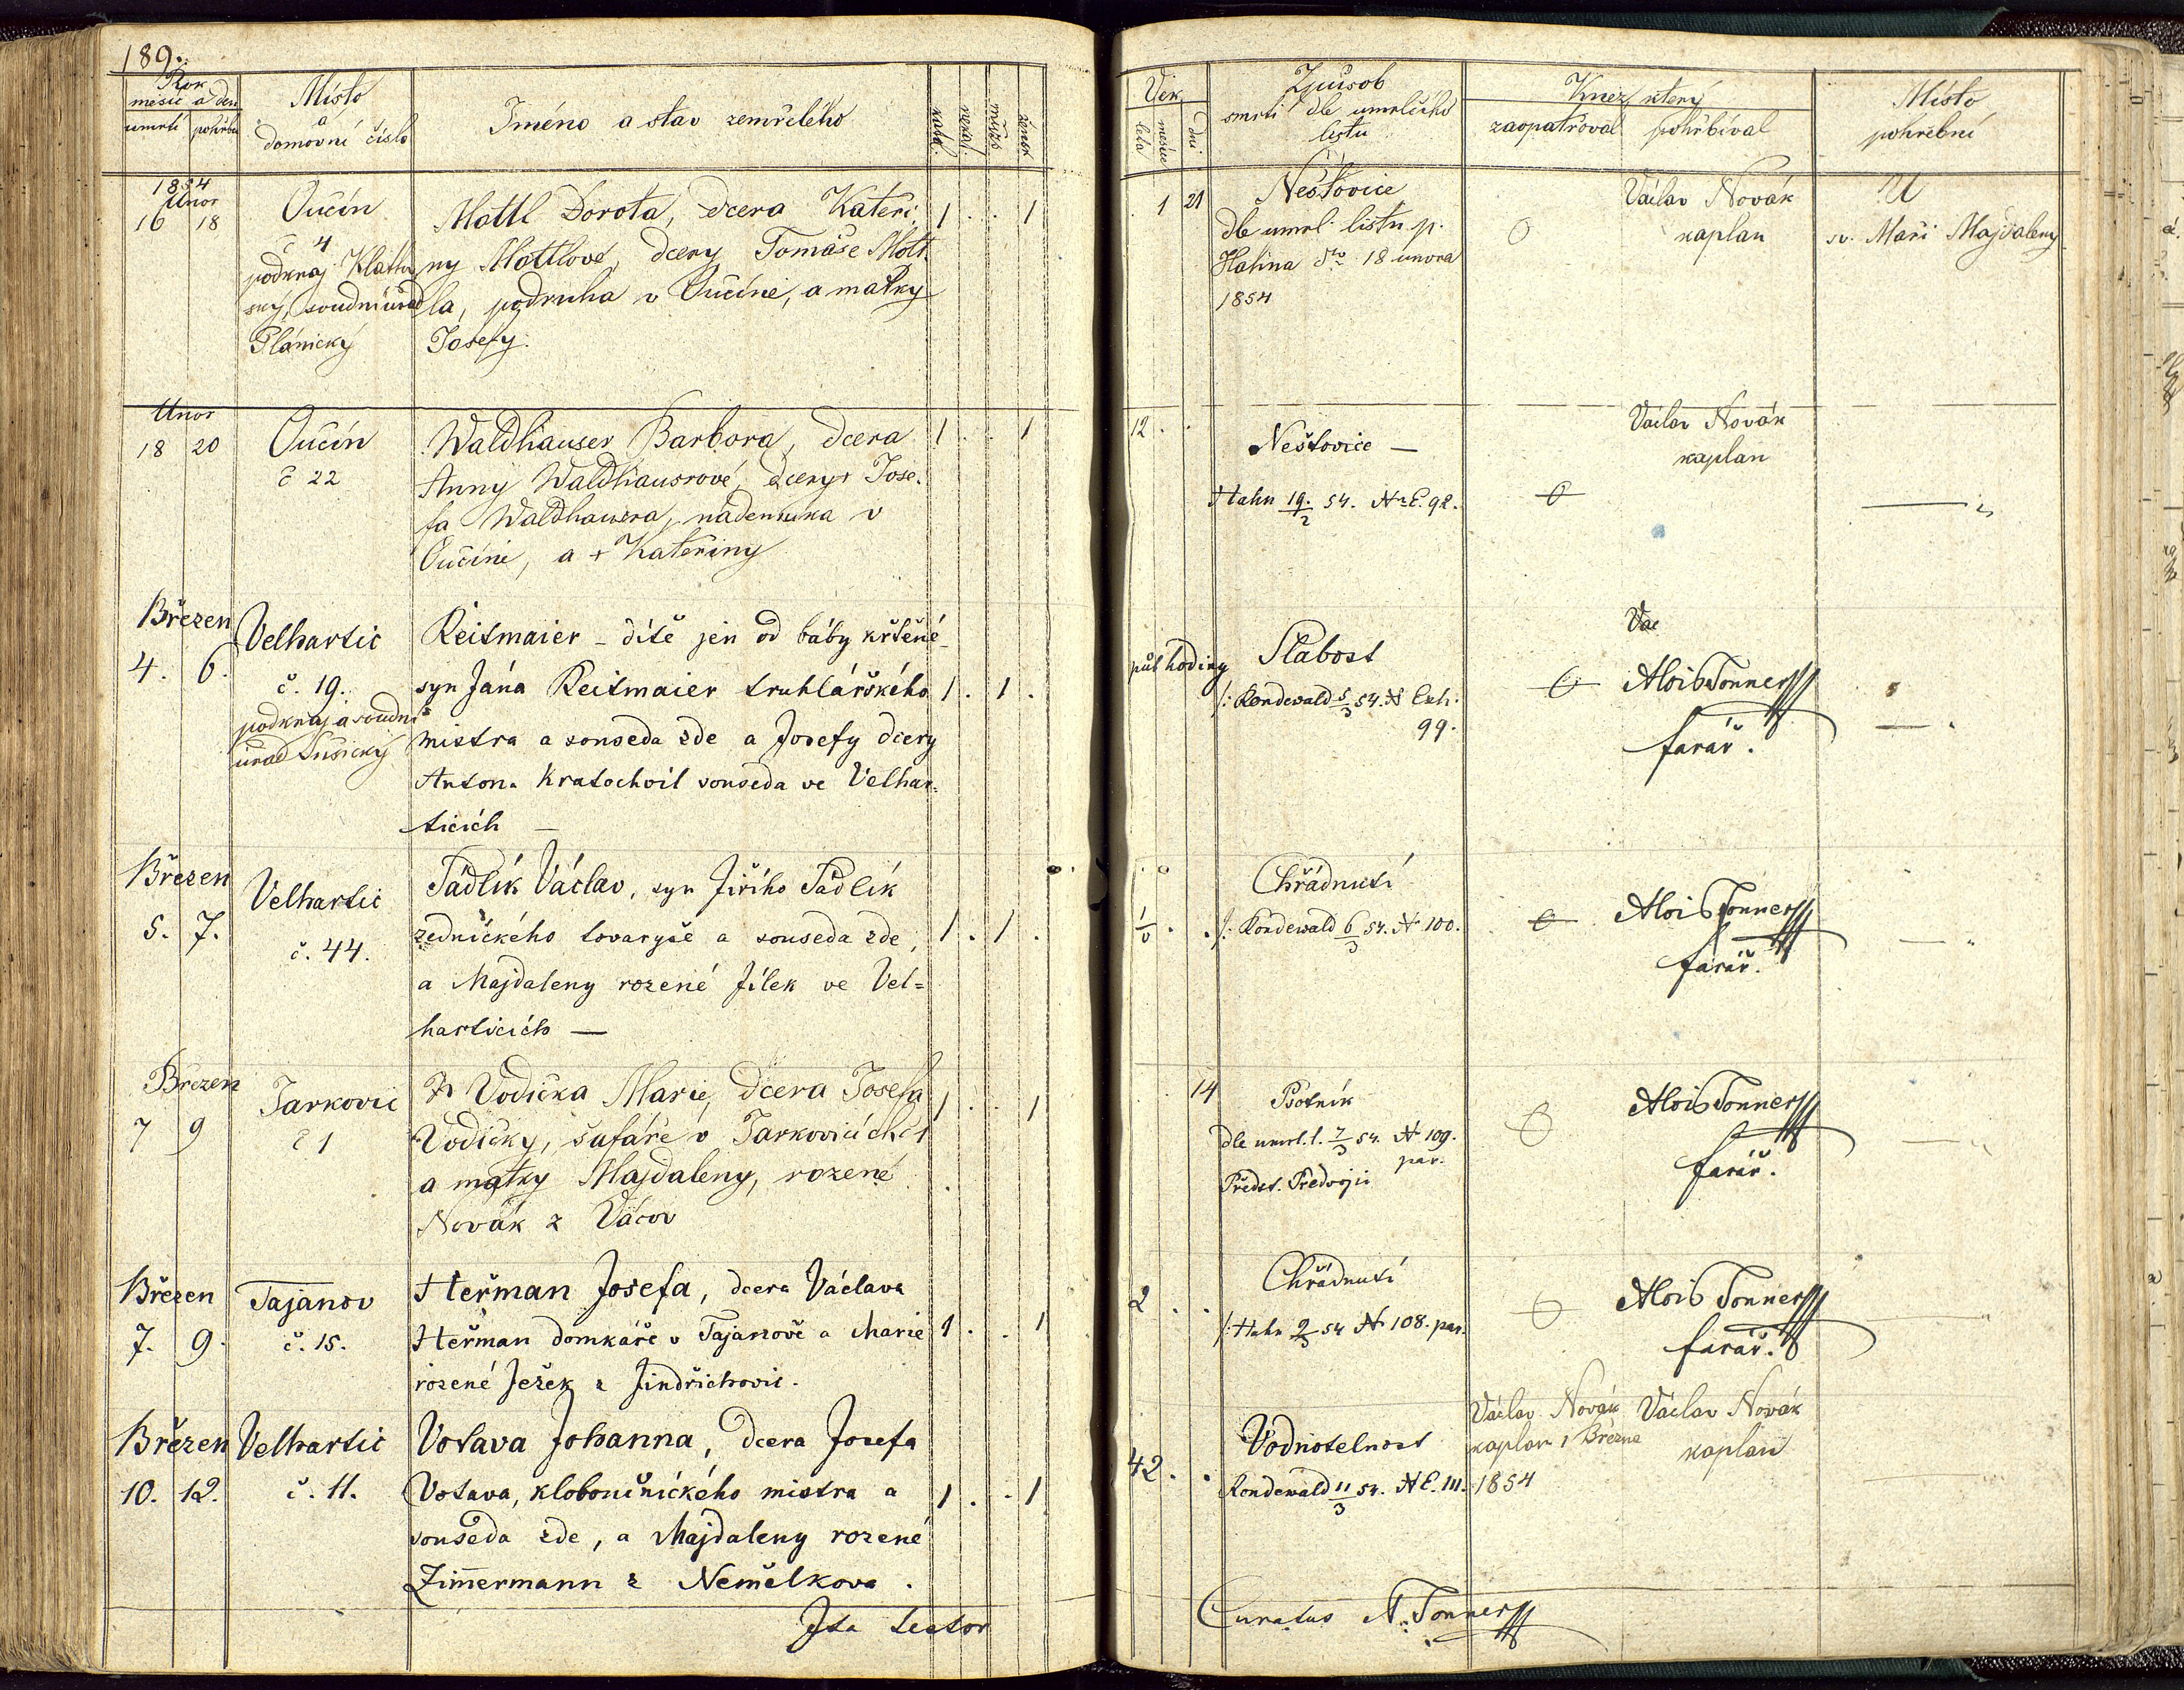 189.
Rok
měsíc a den
umrtí pohřbu
Místo
a
domovní číslo
Jméno a stav zemřelého
kathol.
nekat.
mužsk
žensk
Věk
leta
měsíce
dni
Způsob
smrti dle umrlčího
listu
Kněz který
zaopatřoval pohřbíval
Místo
pohřební
1854
Unor
16 18
Oučín
č 4
podkraj Klattov
ský, soudní úřad
Plánický
Mottl Dorota, dcera Kateři
ny Mottlové, dcery Tomáše Mott
la, podruha v Oučíně, a matky
Josefy.
1 . . 1
. 1 21
Neštovice
dle umrl. listu p.
Hahna dto 18 unora
1854
0
Václav Novák
kaplan
U
sv. Maří Majdaleny
Unor
18 20
Oučín
č 22
Waldhauser Barbora, dcera
Anny Waldhausrové, dcery + Jose-
fa Waldhausra, nádenníka v
Oučíně, a + Kateřiny
1 . . 1
12 . .
Neštovice —
Hahn 19/2 54. Nr E. 92.
0
Václav Novák
kaplan
Březen
4. 6.
Velhartic
č. 19.
podkraj a soudní
úřad Sušický
Reitmaier – dítě jen od báby křtěné –
syn Jána Reitmaier truhlářského
mistra a souseda zde a Josefy dcery
Antona Kratochvil souseda ve Velhar=
ticích —
1 . 1 .
půl hodiny
Slabost
/: Rondewald 5/3 54. N Exh.
99.
0
Vac
Alois Tonner
farář.
Březen
5. 7.
Velhartic
č. 44.
Tádlík Václav, syn Jiřího Tádlík
zednického tovaryše a souseda zde,
a Majdaleny rozené Jílek ve Vel=
harticích —
1 . 1 .
Chřádnutí
/: Rondewald 6/3 54. N 100.
0
Alois Tonner
farář.
Březen
7 9
Jarkovic
č 1
Vodička Marie, dcera Josefa
Vodičky, šafáře v Jarkovicích č 1
a matky Majdaleny, rozené
Novák z Vácov
1 . . 1
14
Psotník
dle umrl. l. 7/3 54. N 109.
par.
Předst. Předvojii
0
Alois Tonner
farář.
Březen
7. 9.
Tajanov
č. 15.
Heřman Josefa, dcera Václava
Heřman domkáře v Tajanově a Marie
rozené Ježek z Jindřichovic.
1 . . 1
2 . .
Chřádnutí
/: Hahn 9/3 54 N 108. par.
0
Alois Tonner
farář.
Březen
10. 12.
Velhartic
č. 11.
Votava Johanna, dcera Josefa
Votava, kloboučnického mistra a
souseda zde, a Majdaleny rozené
Zimermann z Nemělkova.
1 . . 1
42 . .
Vodnotelnost
Rondewald 11/3 54. N E. 111.
Václav Novák
kaplan 1 Března
1854
Václav Novák
kaplan
Ita testor
Curatus A. Tonner